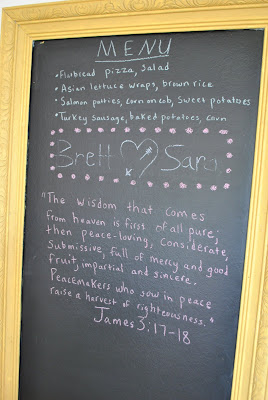 MENU
• Flatbread pizza, salad
• Asian lettuce wraps, brown rice
• Salmon patties, corn on cob, sweet potatoes
• Turkey sausage, baked potatoes, corn
Brett ♡ Sara
"The wisdom that comes
from heaven is first of all pure;
then peace-loving, considerate,
submissive, full of mercy and good
fruit, impartial and sincere.
Peacemakers who sow in peace
raise a harvest of righteousness."
James 3:17-18